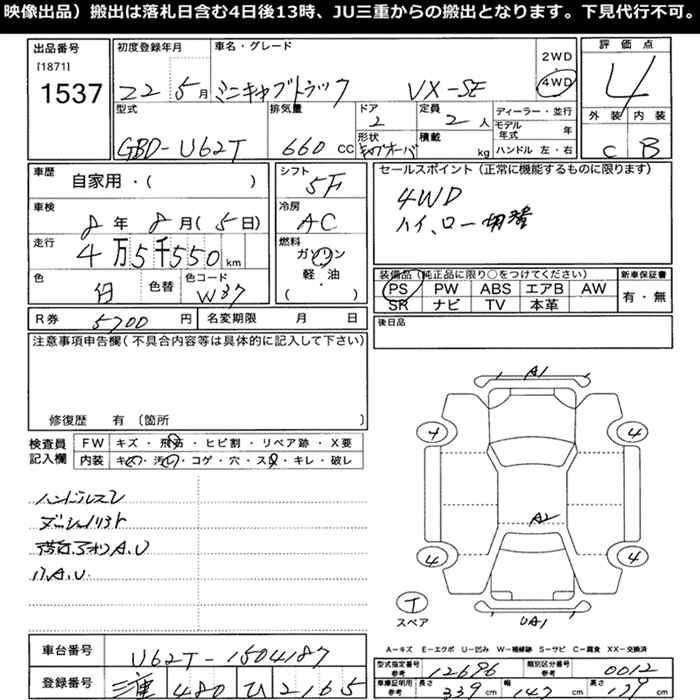 映像出品）搬出は落札日含む4日後13時、JU三重からの搬出となります。下見代行不可。
出品番号
[1871]
1537
初度登録年月
22 5月
車名・グレード
ミニキャブトラック VX-SE
2WD
・
4WD
評価点
4
型式
GBD-U62T
排気量
660 CC
ドア
2
形状
定員
2 人
積載
kg
ディーラー・並行
モデル年式 年
ハンドル 左・右
外装 内装
C B
車歴
自家用・( )
シフト
5F
セールスポイント（正常に機能するものに限ります）
4WD
ハイ、ロー切替
車検
8年 8月(5日)
冷房
AC
走行
4万5千550km
燃料
ガソリン
・
軽油
・
( )
色
白
色替
色コード
W37
装備品（純正品に限り○をつけてください）
PS PW ABS エアB AW
SR ナビ TV 本革
新車保証書
有・無
R券 5700 円
名変期限 月 日
後日品
注意事項申告欄(不具合内容等は具体的に記入して下さい)
修復歴 有 〔箇所 〕
検査員記入欄
FW キズ・飛石・ヒビ割・リペア跡・X要
内装 キズ・汚れ・コゲ・穴・スレ・キレ・破レ
ハンドルスレ
A.U
A.U.
A1
4 4
A2
4 4
T
スペア
UA1
A−キズ E−エクボ U−凹み W−補修跡 S−サビ C−腐食 XX−交換済
車台番号
U62T-1504187
登録番号
三重 480 ひ 2165
型式指定番号 参考
12696
類別区分番号 参考
0012
車庫証明用 参考
長さ 339 cm
幅 147 cm
高さ cm